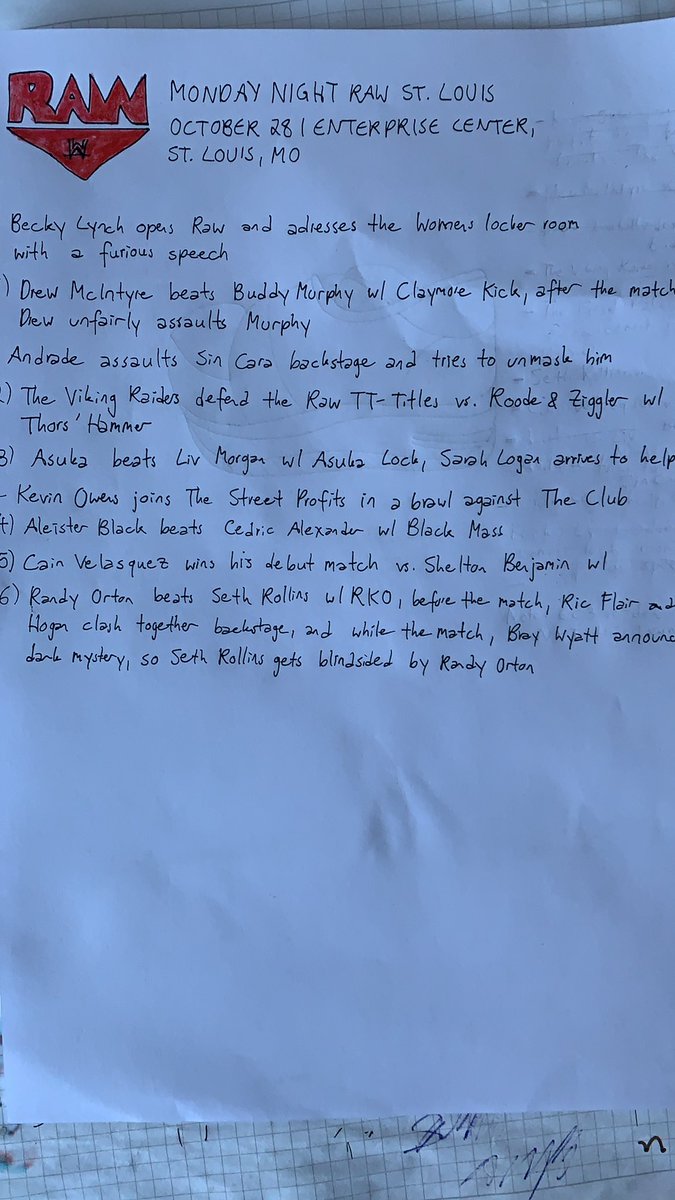 RAW MONDAY NIGHT RAW ST. LOUIS
W OCTOBER 28 | ENTERPRISE CENTER,
ST. LOUIS, MO
Becky Lynch opens Raw and adresses the Womens locker room
with a furious speech
) Drew McIntyre beats Buddy Murphy w/ Claymore Kick, after the match
Drew unfairly assaults Murphy
Andrade assaults Sin Cara backstage and tries to unmask him
2) The Viking Raiders defend the Raw TT-Titles vs. Roode & Ziggler w/
Thors' Hammer
3) Asuka beats Liv Morgan w/ Asuka Lock, Sarah Logan arrives to help
- Kevin Owens joins The Street Profits in a brawl against The Club
4) Aleister Black beats Cedric Alexander w/ Black Mass
5) Cain Velasquez wins his debut match vs. Shelton Benjamin w/
6) Randy Orton beats Seth Rollins w/ RKO, before the match, Ric Flair and
Hogan clash together backstage, and while the match, Bray Wyatt announc
dark mystery, so Seth Rollins gets blindsided by Randy Orton
n